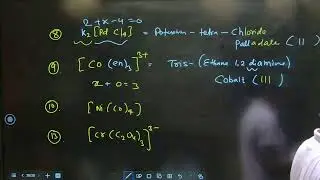 2 + x - 4 = 0
⑧ K₂ [Pd Cl₄] = Potassium - tetra - Chlorido
Palladate (II)
⑨ [CO (en)₃]³⁺ = Tris- (Ethane 1,2 diamine)
x + 0 = 3 Cobalt (III)
⑩ [Ni (Co)₄]
⑬ [Cr (C₂O₄)₃]³⁻